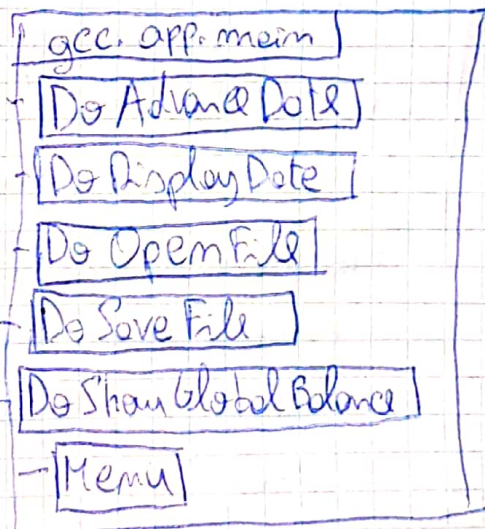 gcc.app.main
Do Advance Date
Do Display Date
Do Open File
Do Save File
Do Show Global Balance
Menu